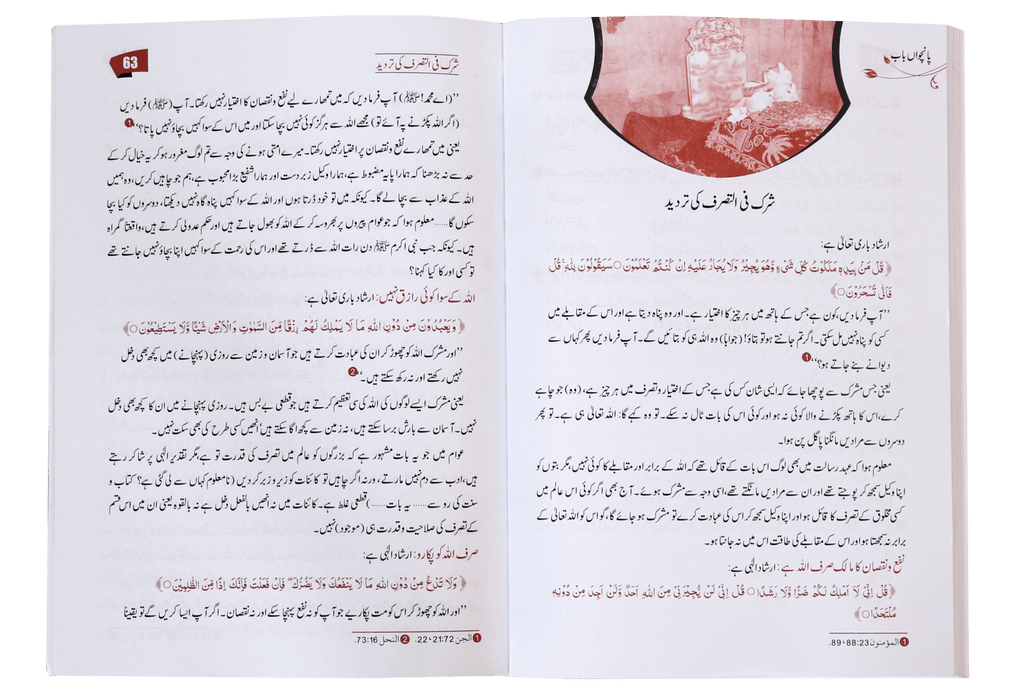 پانچواں باب
شرک فی التصرف کی تردید
ارشاد باری تعالیٰ ہے:
﴿قُلْ مَنْۢ بِیَدِهٖ مَلَكُوْتُ كُلِّ شَیْءٍ وَّهُوَ یُجِیْرُ وَلَا یُجَارُ عَلَیْهِ اِنْ كُنْتُمْ تَعْلَمُوْنَ○ سَیَقُوْلُوْنَ لِلّٰهِ ؕ قُلْ
فَاَنّٰی تُسْحَرُوْنَ○﴾
”آپ فرما دیں، کون ہے جس کے ہاتھ میں ہر چیز کا اختیار ہے۔ اور وہ پناہ دیتا ہے اور اس کے مقابلے میں
کسی کو پناہ نہیں مل سکتی۔ اگر تم جانتے ہو تو بتاؤ! (جواباً) وہ اللہ ہی کو بتائیں گے۔ آپ فرما دیں پھر کہاں سے
دیوانے بنے جاتے ہو؟“ 1
یعنی جس مشرک سے پوچھا جائے کہ ایسی شان کس کی ہے جس کے اختیار و تصرف میں ہر چیز ہے، (وہ) جو چاہے
کرے، اس کا ہاتھ پکڑنے والا کوئی نہ ہو اور کوئی اس کی بات ٹال نہ سکے۔ تو وہ کہے گا: اللہ تعالیٰ ہی ہے۔ تو پھر
دوسروں سے مرادیں مانگنا پاگل پن ہوا۔
معلوم ہوا کہ عہد رسالت میں بھی لوگ اس بات کے قائل تھے کہ اللہ کے برابر اور مقابلے کا کوئی نہیں، مگر بتوں کو
اپنا وکیل سمجھ کر پوجتے تھے اور ان سے مرادیں مانگتے تھے، اسی وجہ سے مشرک ہوئے۔ آج بھی اگر کوئی اس عالم میں
کسی مخلوق کے تصرف کا قائل ہو اور اپنا وکیل سمجھ کر اس کی عبادت کرے تو مشرک ہو جائے گا، گو اس کو اللہ تعالیٰ کے
برابر نہ سمجھتا ہو اور اس کے مقابلے کی طاقت اس میں نہ جانتا ہو۔
نفع و نقصان کا مالک صرف اللہ ہے: ارشاد الٰہی ہے:
﴿قُلْ اِنِّیْ لَاۤ اَمْلِكُ لَكُمْ ضَرًّا وَّلَا رَشَدًا○ قُلْ اِنِّیْ لَنْ یُّجِیْرَنِیْ مِنَ اللّٰهِ اَحَدٌ وَّلَنْ اَجِدَ مِنْ دُوْنِهٖ
مُلْتَحَدًا○﴾
1 المؤمنون 88:23، 89.
شرک فی التصرف کی تردید
63
”(اے محمد! ﷺ) آپ فرما دیں کہ میں تمھارے لیے نفع و نقصان کا اختیار نہیں رکھتا۔ آپ (ﷺ) فرما دیں
(اگر اللہ پکڑنے پہ آئے تو) مجھے اللہ سے ہرگز کوئی نہیں بچا سکتا اور میں اس کے سوا کہیں بچاؤ نہیں پاتا؟“ 1
یعنی میں تمھارے نفع و نقصان پر اختیار نہیں رکھتا۔ میرے امتی ہونے کی وجہ سے تم لوگ مغرور ہو کر یہ خیال کر کے
حد سے نہ بڑھنا کہ ہمارا پایہ مضبوط ہے، ہمارا وکیل زبردست اور ہمارا شفیع بڑا محبوب ہے، ہم جو چاہیں کریں، وہ ہمیں
اللہ کے عذاب سے بچا لے گا۔ کیونکہ میں تو خود ڈرتا ہوں اور اللہ کے سوا کہیں پناہ گاہ نہیں دیکھتا، دوسروں کو کیا بچا
سکوں گا...... معلوم ہوا کہ جو عوام پیروں پر بھروسہ کر کے اللہ کو بھول جاتے ہیں اور حکم عدولی کرتے ہیں، واقعتاً گمراہ
ہیں۔ کیونکہ جب نبی اکرم ﷺ دن رات اللہ سے ڈرتے تھے اور اس کی رحمت کے سوا کہیں اپنا بچاؤ نہیں جانتے تھے
تو کسی اور کا کیا کہنا؟
اللہ کے سوا کوئی رازق نہیں: ارشاد باری تعالیٰ ہے:
﴿وَیَعْبُدُوْنَ مِنْ دُوْنِ اللّٰهِ مَا لَا یَمْلِكُ لَهُمْ رِزْقًا مِّنَ السَّمٰوٰتِ وَالْاَرْضِ شَیْـًٔا وَّلَا یَسْتَطِیْعُوْنَ○﴾
”اور مشرک اللہ کو چھوڑ کر ان کی عبادت کرتے ہیں جو آسمان و زمین سے روزی (پہنچانے) میں کچھ بھی دخل
نہیں رکھتے اور نہ رکھ سکتے ہیں۔“ 2
یعنی مشرک ایسے لوگوں کی اللہ کی سی تعظیم کرتے ہیں جو قطعی بے بس ہیں۔ روزی پہنچانے میں ان کا کچھ بھی دخل
نہیں۔ آسمان سے بارش برسا سکتے ہیں، نہ زمین سے کچھ اگا سکتے ہیں انھیں کسی طرح کی بھی سکت نہیں۔
عوام میں جو یہ بات مشہور ہے کہ بزرگوں کو عالم میں تصرف کی قدرت تو ہے، مگر تقدیر الٰہی پر شاکر رہتے
ہیں، ادب سے دم نہیں مارتے، ورنہ اگر چاہیں تو کائنات کو زیر و زبر کر دیں (نا معلوم کہاں سے لی گئی ہے؟ کتاب و
سنت کی رو سے...... یہ بات......) قطعی غلط ہے۔ کائنات میں نہ انھیں بالفعل دخل ہے نہ بالقوہ یعنی ان میں اس قسم
کے تصرف کی صلاحیت و قدرت ہی (موجود) نہیں۔
صرف اللہ کو پکارو: ارشاد الٰہی ہے:
﴿وَلَا تَدْعُ مِنْ دُوْنِ اللّٰهِ مَا لَا یَنْفَعُكَ وَلَا یَضُرُّكَ ۚ فَاِنْ فَعَلْتَ فَاِنَّكَ اِذًا مِّنَ الظّٰلِمِیْنَ○﴾
”اور اللہ کو چھوڑ کر اس کو مت پکاریے جو آپ کو نہ نفع پہنچا سکے اور نہ نقصان۔ اگر آپ ایسا کریں گے تو یقیناً
1 الجن 21:72، 22. 2 النحل 73:16.